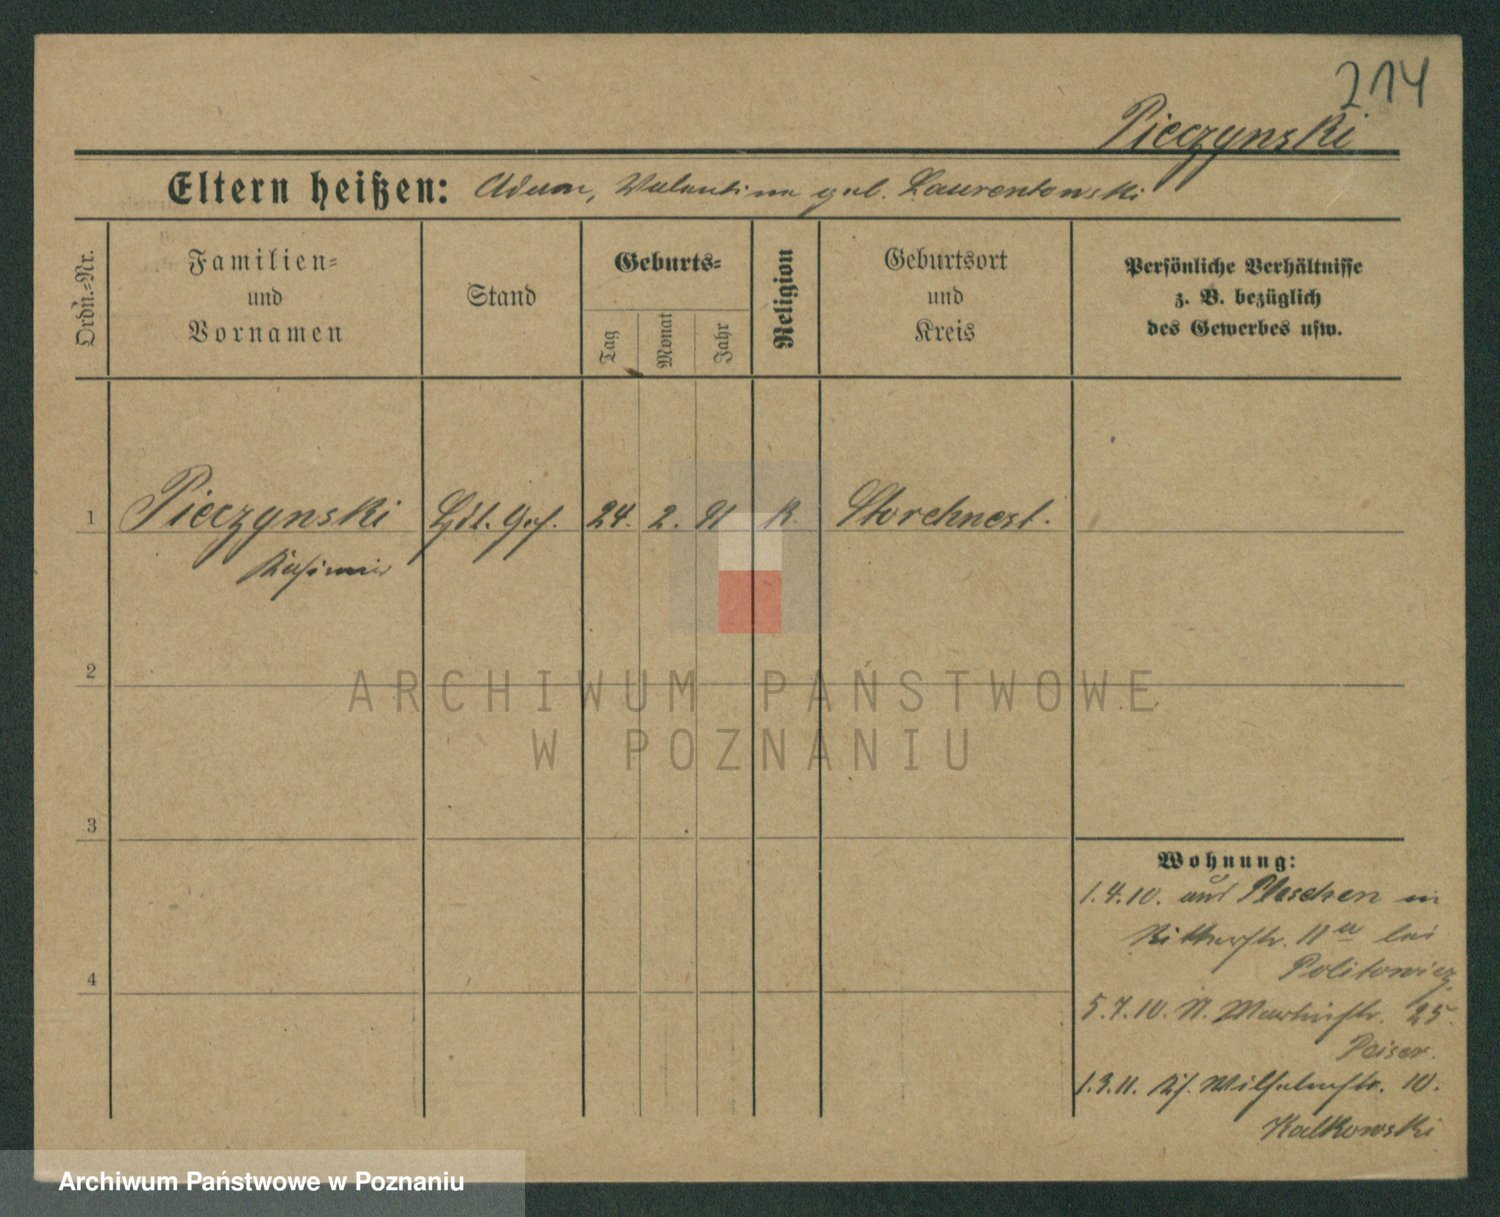 214
Pieczynski
Eltern heißen: Adam, Valentina geb. Laurentowski
Ordn.-Nr.
Familien-
und
Vornamen
Stand
Geburts-
Tag
Monat
Jahr
Religion
Geburtsort
und
Kreis
Persönliche Verhältnisse
z. B. bezüglich
des Gewerbes usw.
1 Pieczynski Hdl. Geh. 24. 2. 91 K. Storchnest.
Kasimir
2
3
4
Wohnung:
1.4.10. aus Pleschen in
Ritterstr. 11a bei
Politowicz
5.7.10. N. Martinstr. 25.
Peiser.
1.3.11. Wilhelmstr. 10.
Kalkowski
ARCHIWUM PAŃSTWOWE
W POZNANIU
Archiwum Państwowe w Poznaniu